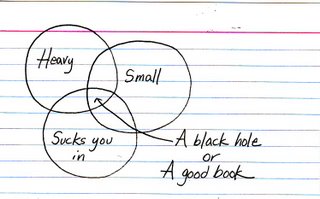 Heavy
Small
Sucks you
in
A black hole
or
A good book